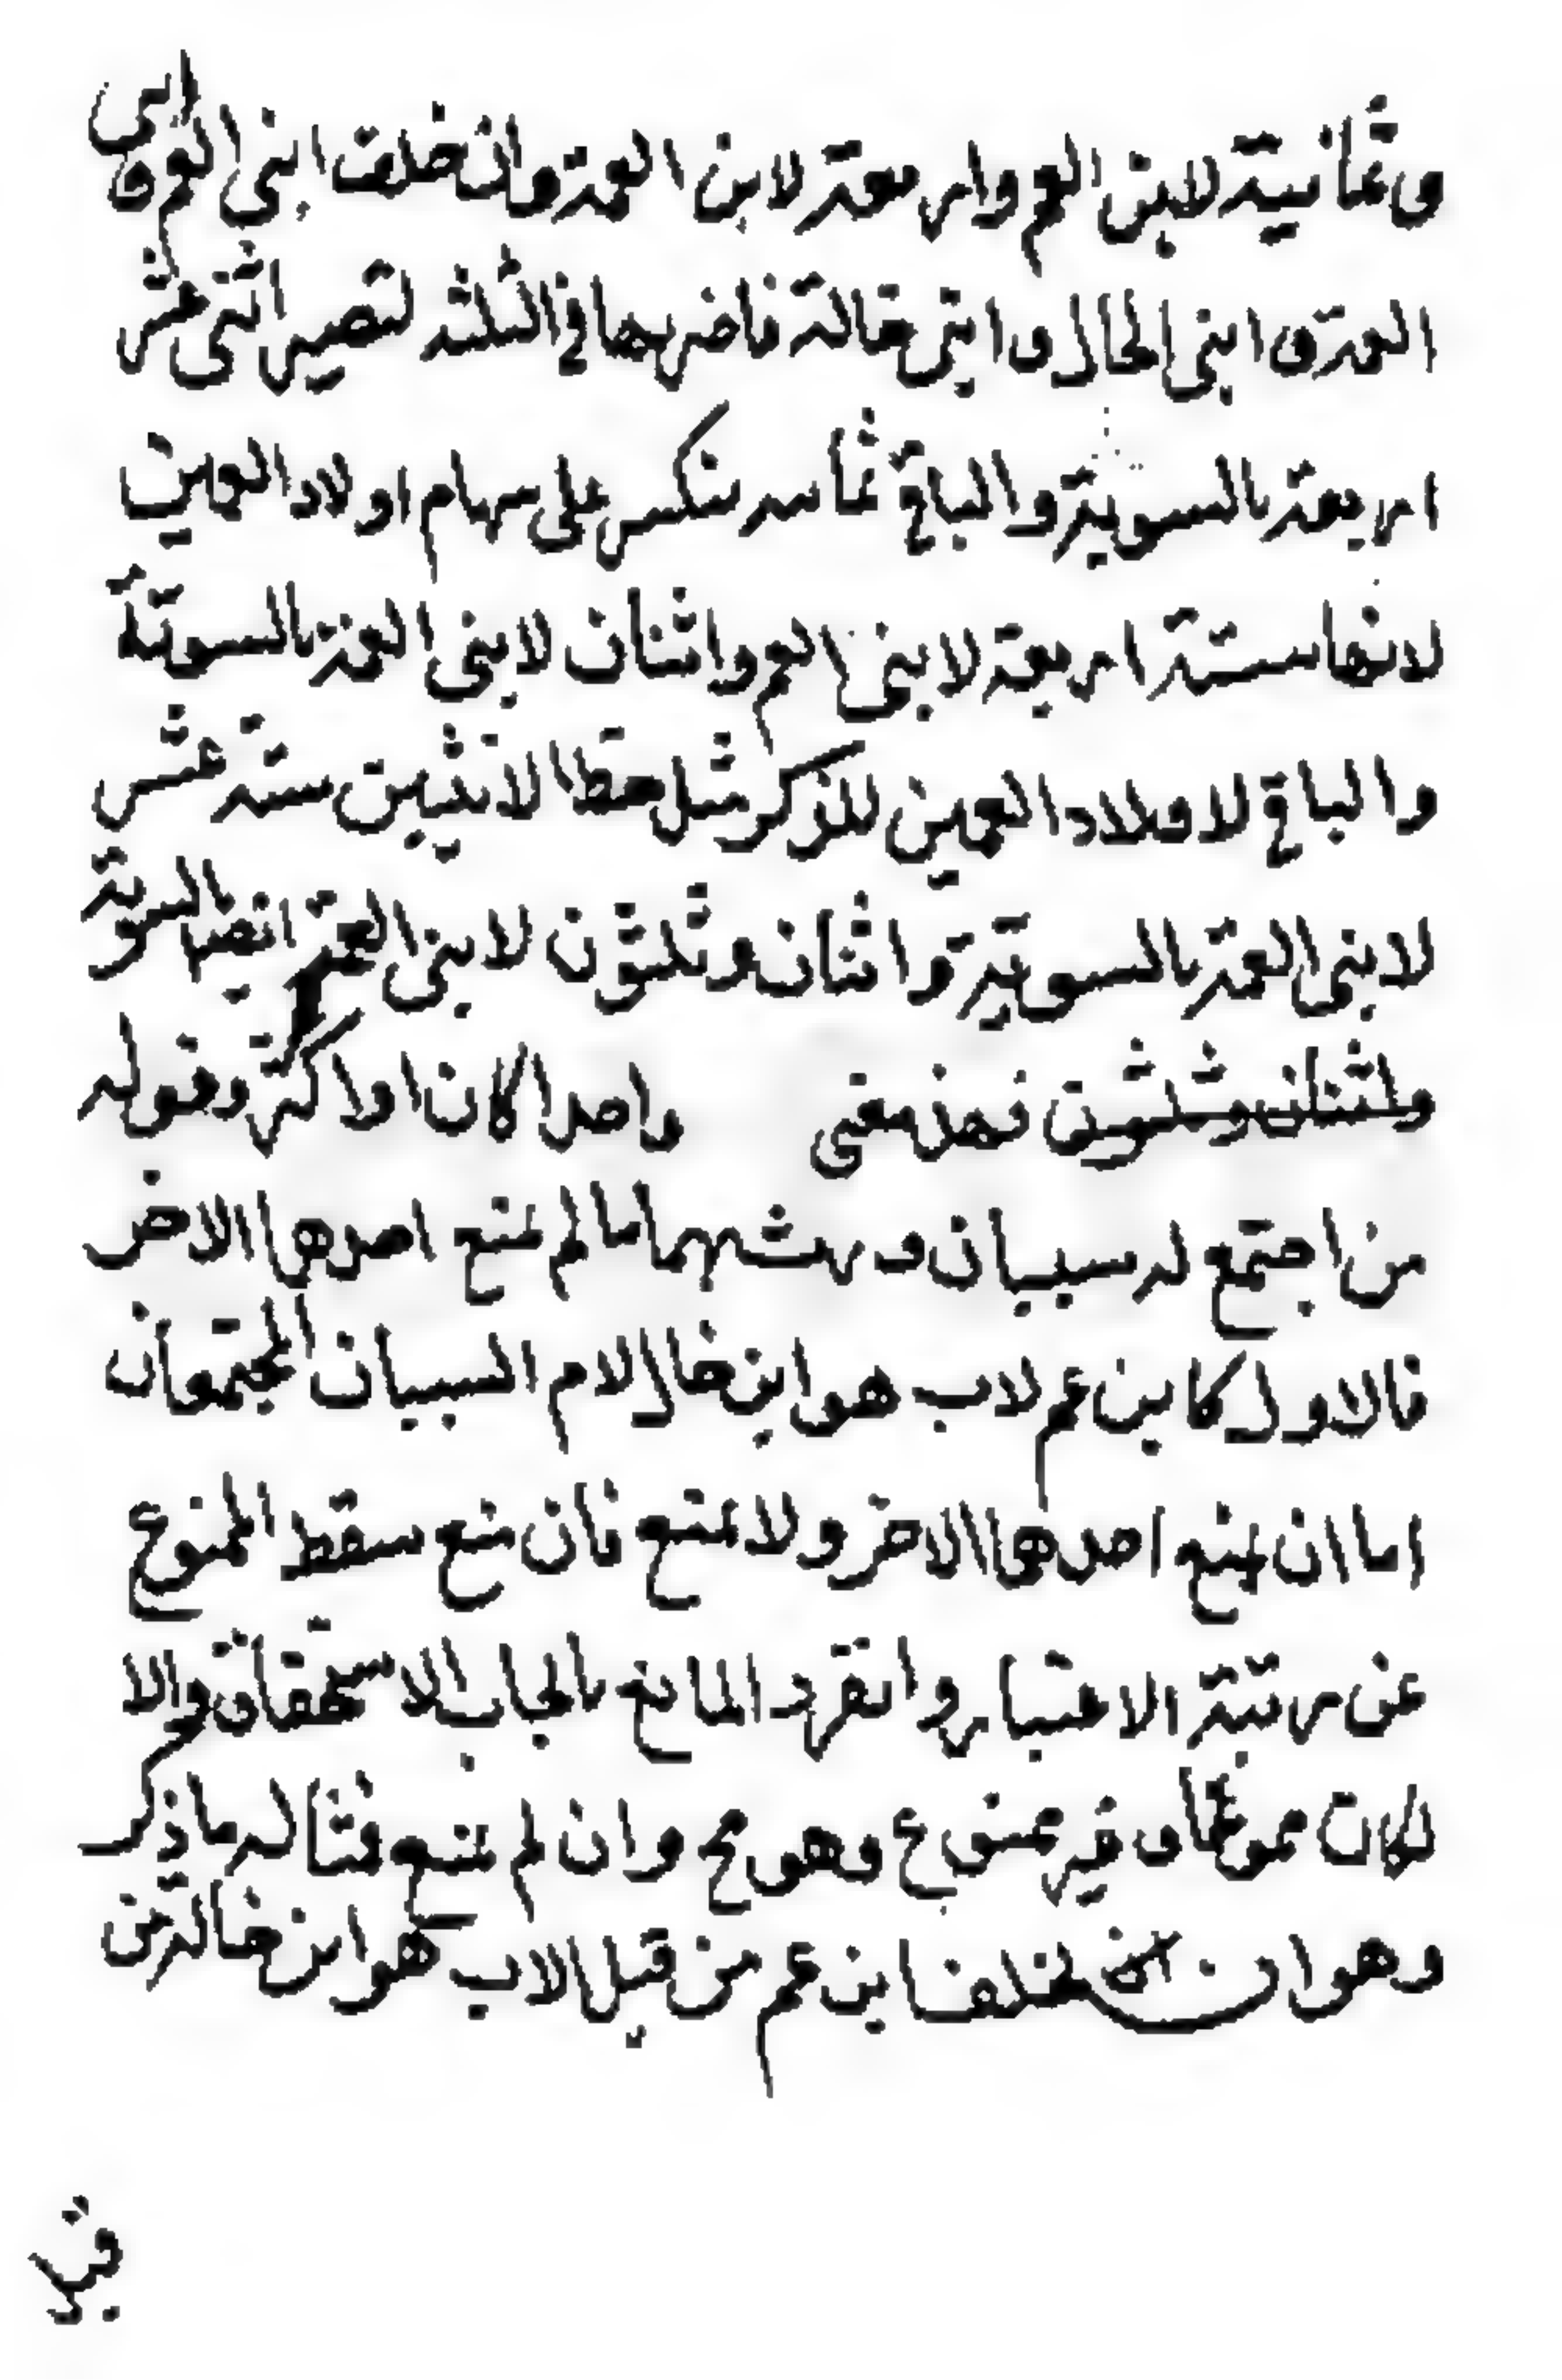 وثمانية لابن العم واربعة لابن العمة وان خلف ابنى العم و ابنى
العمة و ابنى الخال و ابنى خالة فاضربها في الثلثة تصير اثنى عشر
اربعة بالسوية والباقي ثمانية تنكسر على سهام اولاد العمين
لانها ستة اربعة لابنى العم واثنان لابنى العمة بالسوية
والباقي لاولاد العمين للذكر مثل حظ الانثيين ستة عشر
لابنى العمة بالسوية واثنان وثلثون لابنى العم ايضا بالسوية
واثنان وثلثون فهذه معنى واحدا كان او اكثر وقوله
من اجتمع له سببان ورث بهما ما لم يمنع احدهما الاخر
فالاول كابن عم لاب هو ابن خال لام السببان المجتمعان
اما ان يمنع احدهما الاخر ولا يمنع فان منع سقط الممنوع
عن رتبة الاعتبار وانفرد المانع بايجاب الاستحقاق والا
لكان ممنوعا وغير ممنوع وهو مح وان لم يمنع فمثاله ما ذكر
وهو ان يخلف ابن عم من قبل الاب هو ابن خالة من
قبل